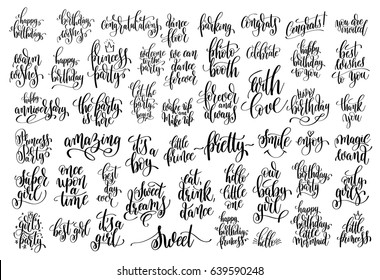 happy
birthday
happy
birthday
congratulations
dance
floor
parking
congrats
Congrats!
you are
invited
warm
wishes
princess
party
welcome
to the
party
we can
dance
forever
photo
booth
celebrate
happy
birthday
to you
best
wishes
to you
happy
anniversary
the party
is here
let the
party
begin
wake up
and
make up
forever
and
always
with
love
happy
birthday
thank
you
Princess
Party
amazing
it's a
boy
little
prince
pretty
smile
enjoy
magic
wand
super
girl
once
upon
time
best
day
ever
sweet
dreams
eat
drink,
dance
hello
little
one
our
baby
girl
happy
birthday,
party
only
girls
girl's
party
best girl
it's a
girl
sweet
happy
birthday
princess
hello
happy
birthday
little
mermaid
shutterstock
IMAGE ID: 639590248
www.shutterstock.com